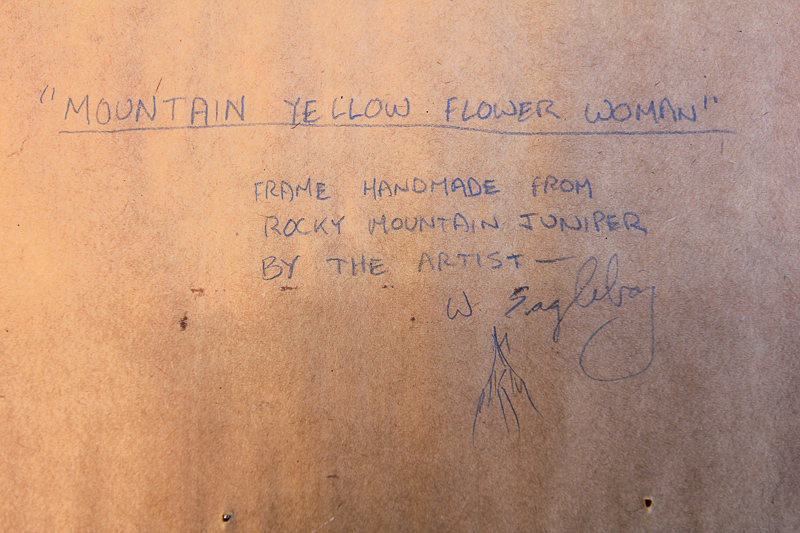 "MOUNTAIN YELLOW FLOWER WOMAN"
FRAME HANDMADE FROM
ROCKY MOUNTAIN JUNIPER
BY THE ARTIST —
W